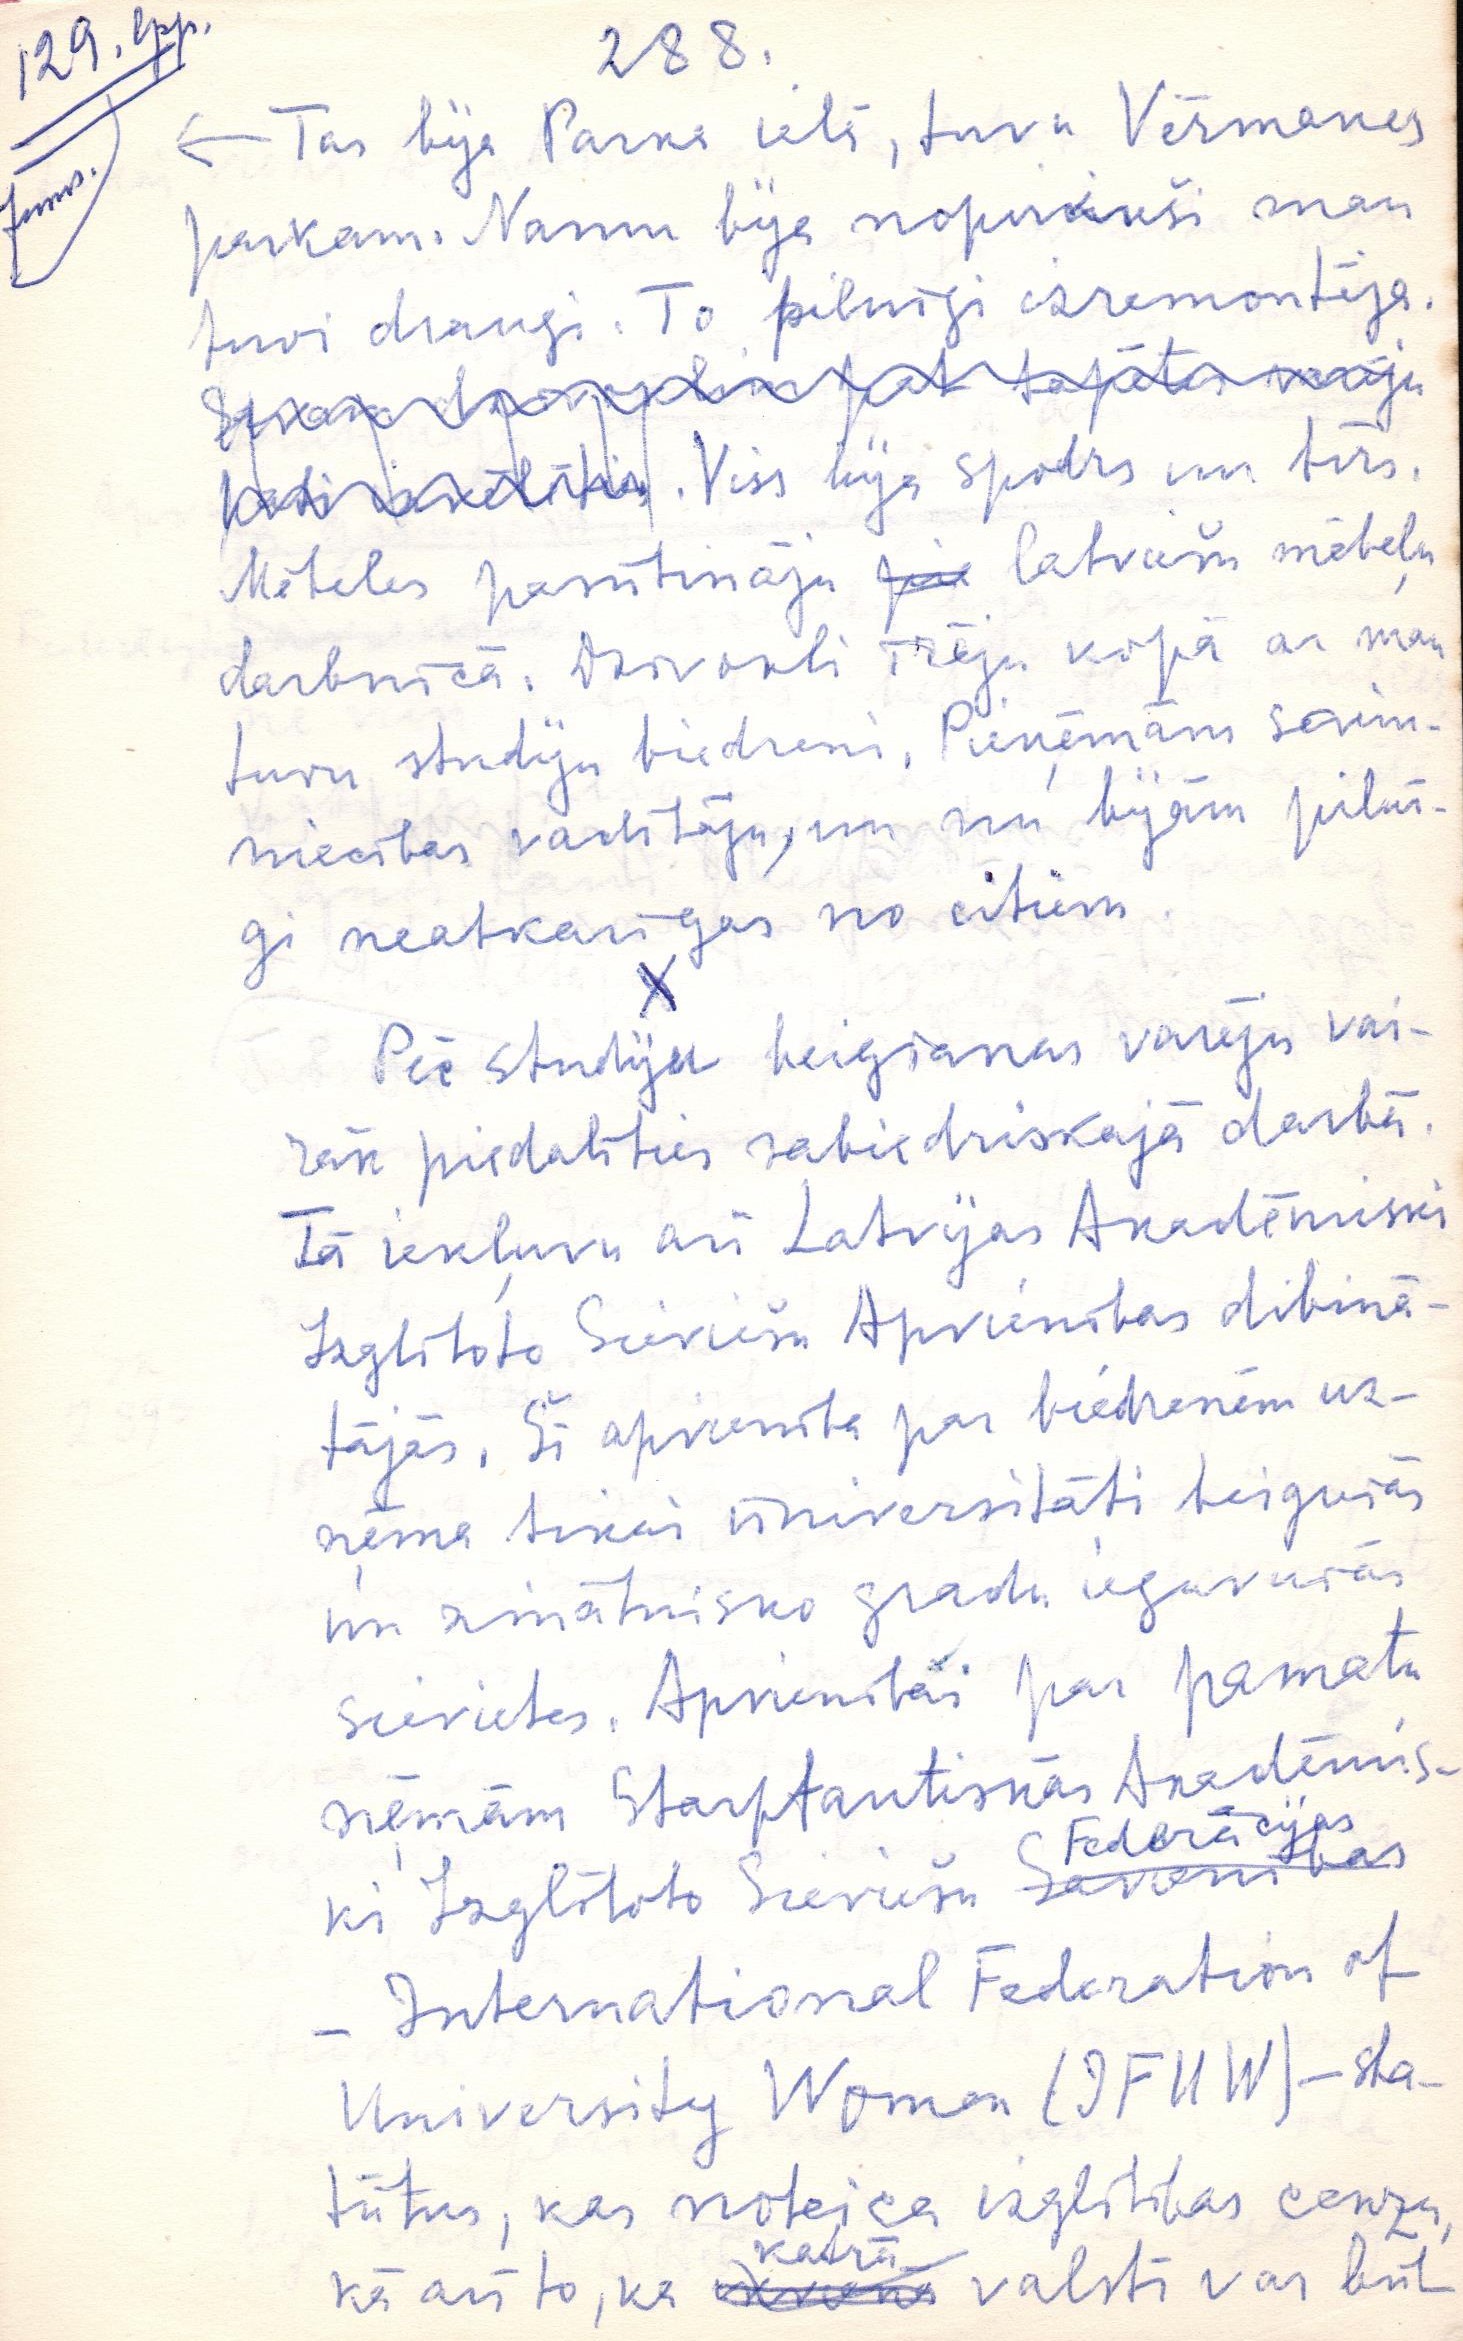 129. lpp.
288.
← Tas bija Parka ielā, tuvu Vērmanes
parkam. Namu bija nopirkuši man
tuvi draugi. To pilnīgi izremontēja.
pat tapetes varēju
. Viss bija spodrs un tīrs.
Mēbeles pasūtināju pie latviešu mēbeļu
darbnīcā. Dzīvokli īrēju kopā ar man
tuvu studiju biedreni. Pieņēmām saim-
niecības vadītāju, un nu bijām pilnī-
gi neatkarīgas no citiem.
X
Pēc studiju beigšanas varēju vai-
rāk piedalīties sabiedriskajā darbā.
Tā iekļuvu arī Latvijas Akadēmiski
Izglītoto Sieviešu Apvienības dibinā-
tājās. Šī apvienība par biedrenēm uz-
ņēma tikai ūniversitāti beigušās
un zinātnisko gradu ieguvušās
sievietes. Apvienībai par pamatu
ņēmām Starptautiskās Akadēmis-
Federācijas
ki Izglītoto Sieviešu Savienības
– International Federation of
University Women (IFUW) – sta-
tūtus, kas noteica izglītības cenzu,
katrā
kā arī to, ka valstī var būt